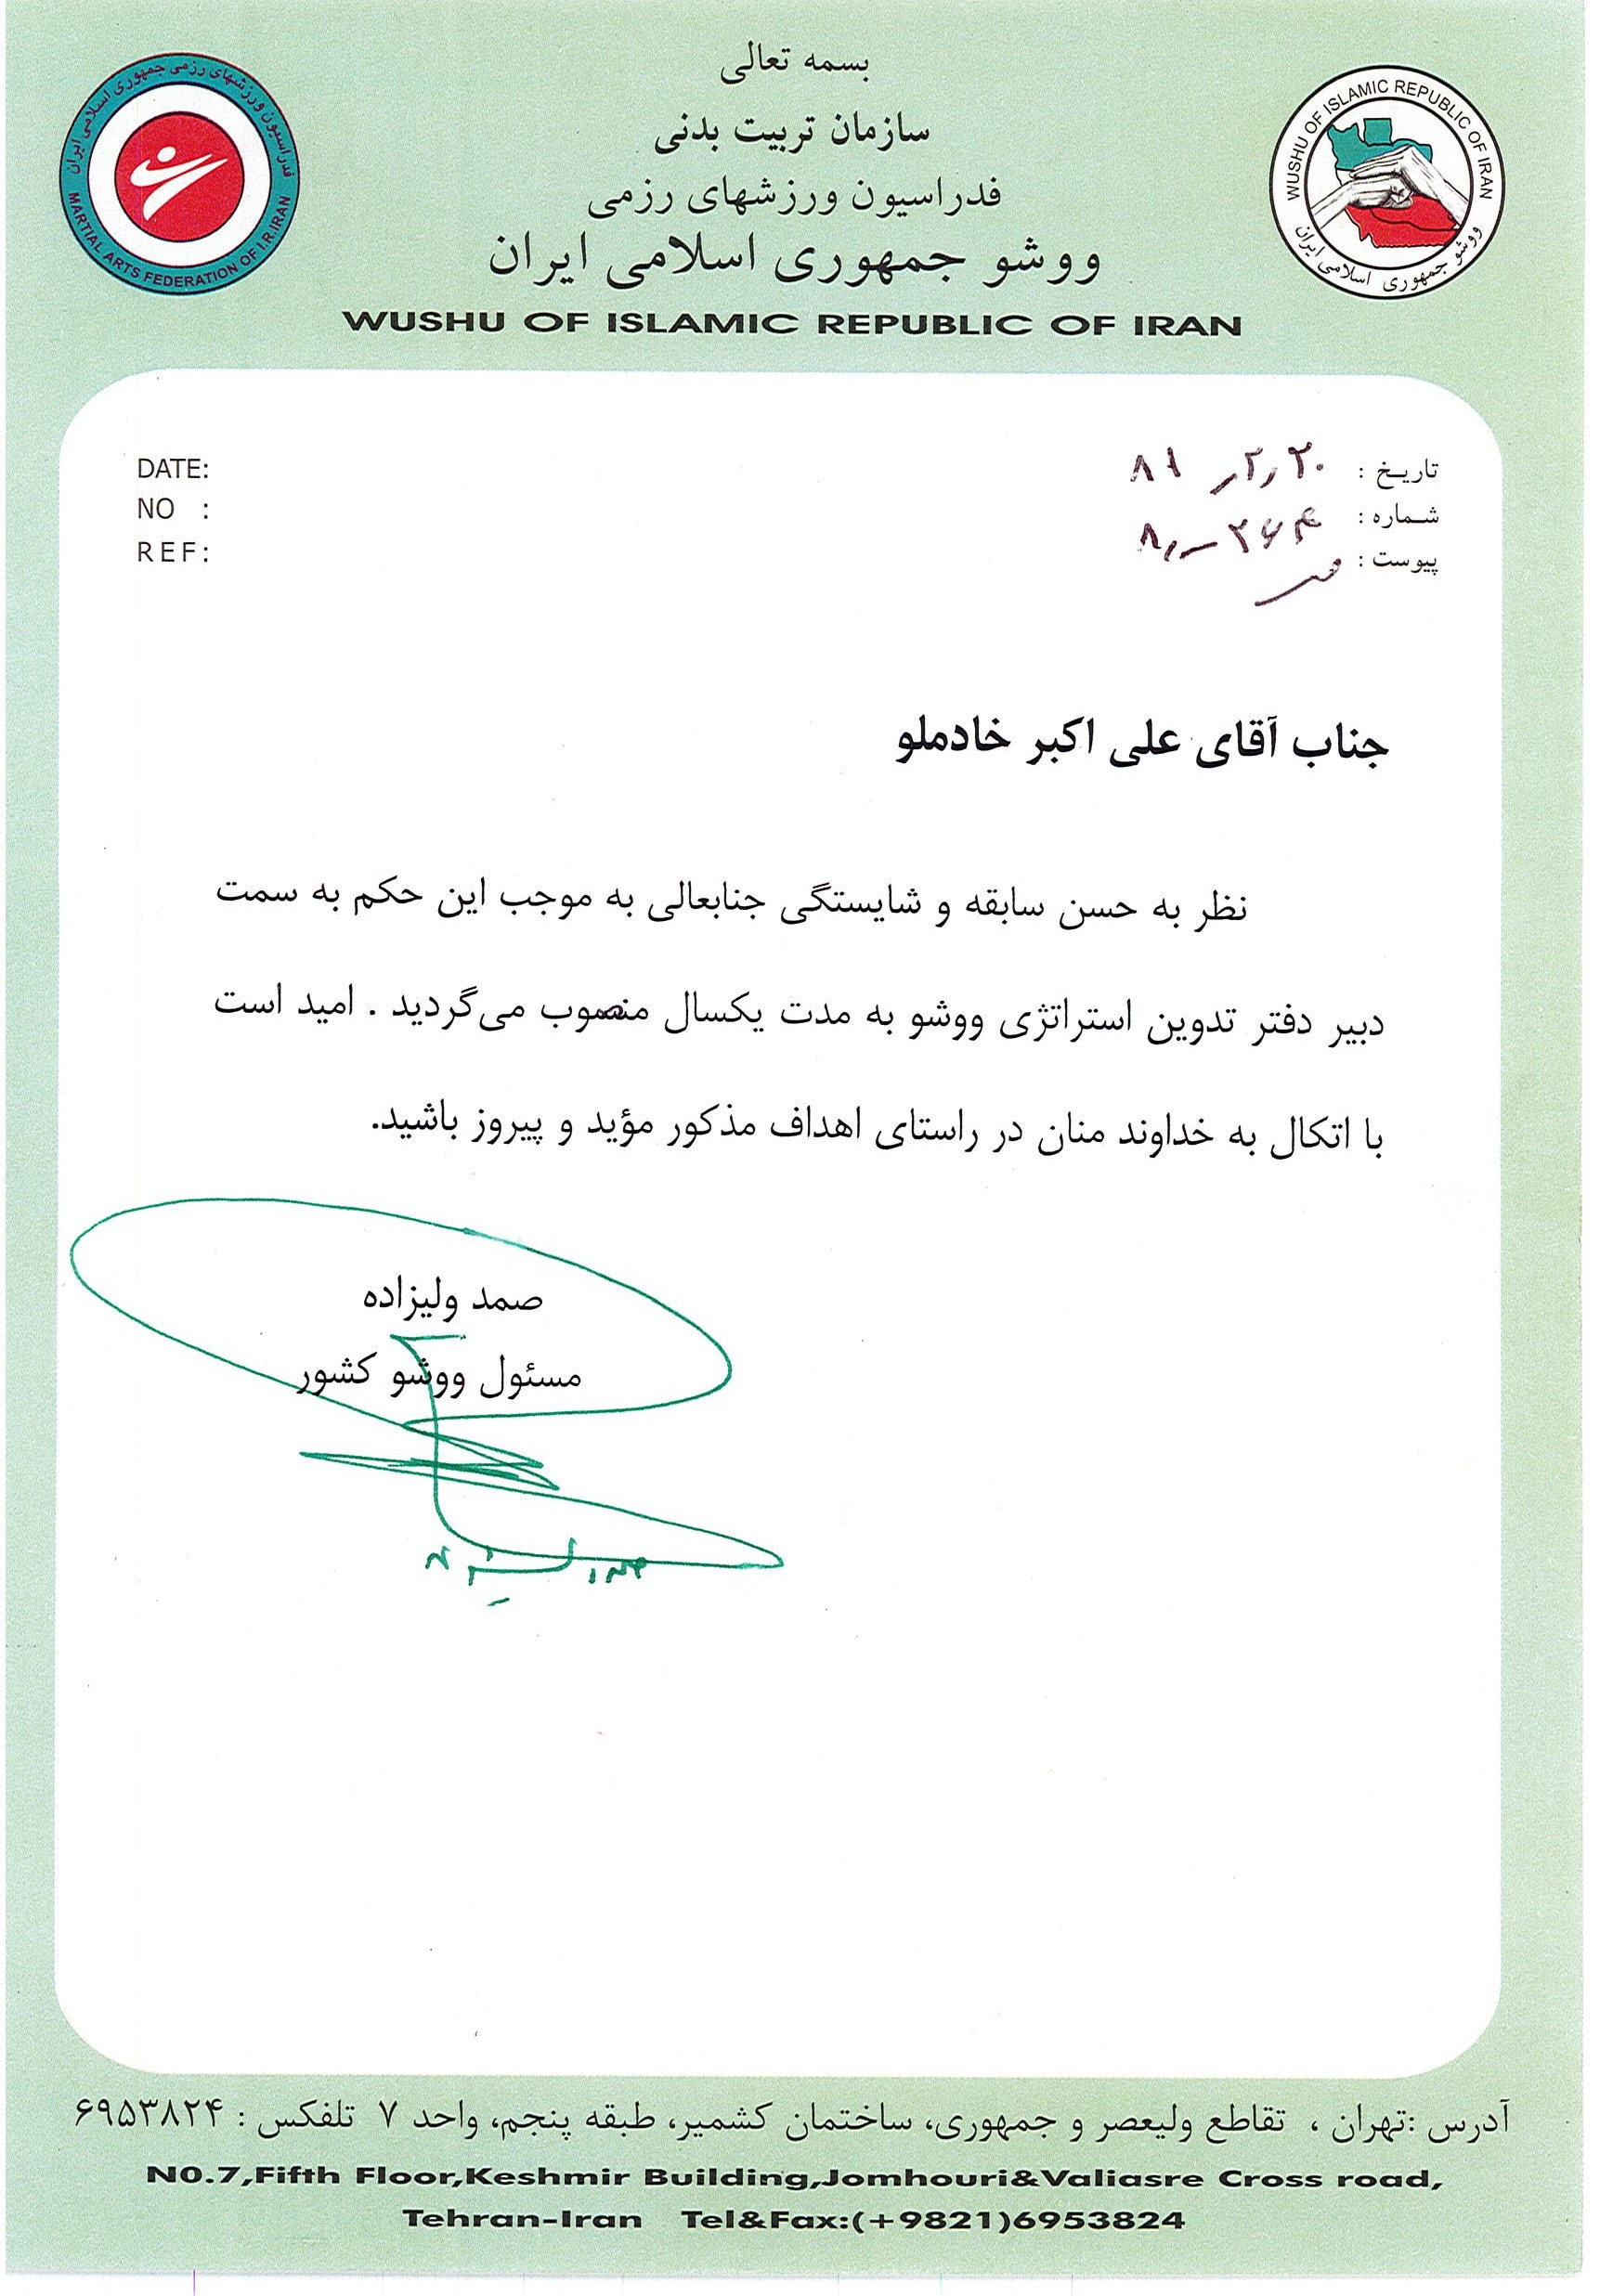 بسمه تعالی
سازمان تربیت بدنی
فدراسیون ورزشهای رزمی
ووشو جمهوری اسلامی ایران
WUSHU OF ISLAMIC REPUBLIC OF IRAN
فدراسیون ورزشهای رزمی جمهوری اسلامی ایران
MARTIAL ARTS FEDERATION OF I.R.IRAN
WUSHU OF ISLAMIC REPUBLIC OF IRAN
ووشو جمهوری اسلامی ایران
تاریخ :
شماره :
پیوست :
DATE:
NO :
REF:
جناب آقای علی اکبر خادملو
نظر به حسن سابقه و شایستگی جنابعالی به موجب این حکم به سمت
دبیر دفتر تدوین استراتژی ووشو به مدت یکسال منصوب می‌گردید . امید است
با اتکال به خداوند منان در راستای اهداف مذکور مؤید و پیروز باشید.
صمد ولیزاده
مسئول ووشو کشور
آدرس :تهران ، تقاطع ولیعصر و جمهوری، ساختمان کشمیر، طبقه پنجم، واحد ۷ تلفکس : ۶۹۵۳۸۲۴
NO.7,Fifth Floor,Keshmir Building,Jomhouri&Valiasre Cross road,
Tehran-Iran Tel&Fax:(+9821)6953824